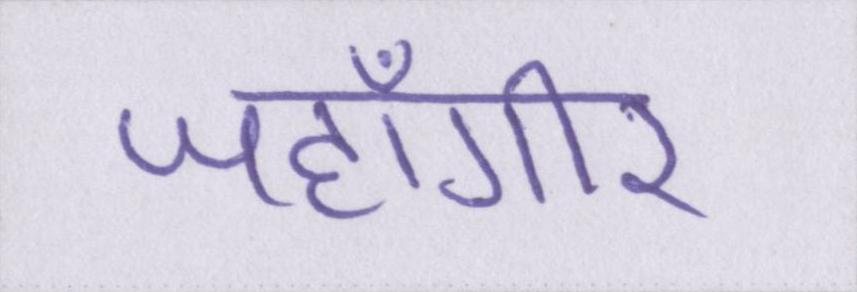 जहाँगीर